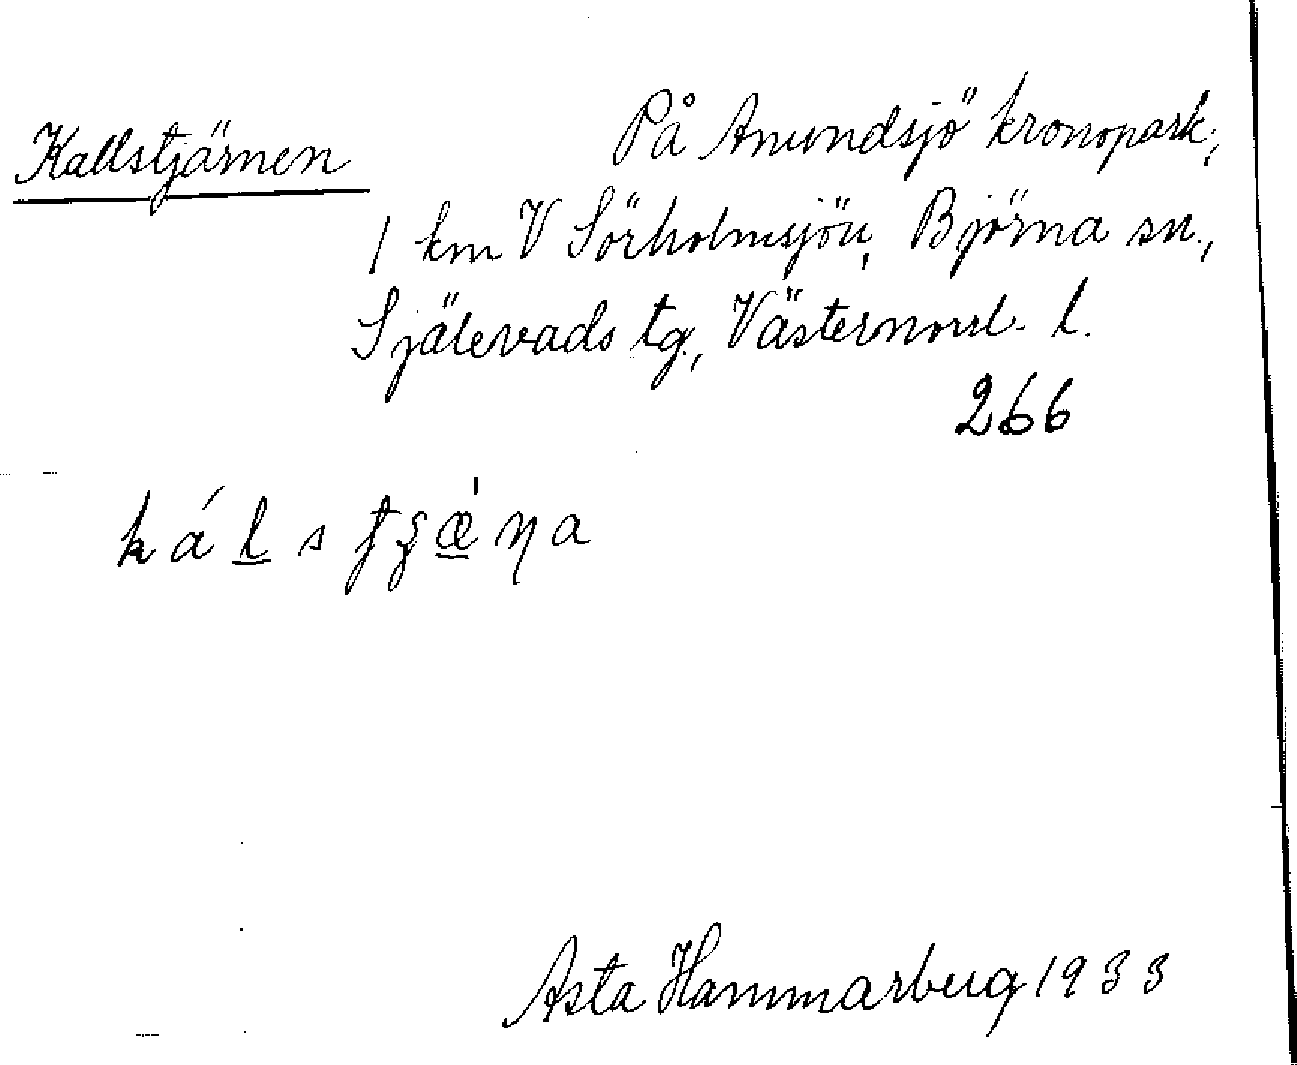 Kallstjärnen
På Anundsjö kronopark;
1 km V Sörholmsjön, Björna sn.,
Själevads tg., Västernorrl. l.
266
k á l s t ʒ æ̍ ŋ a
Asta Hammarberg 1933